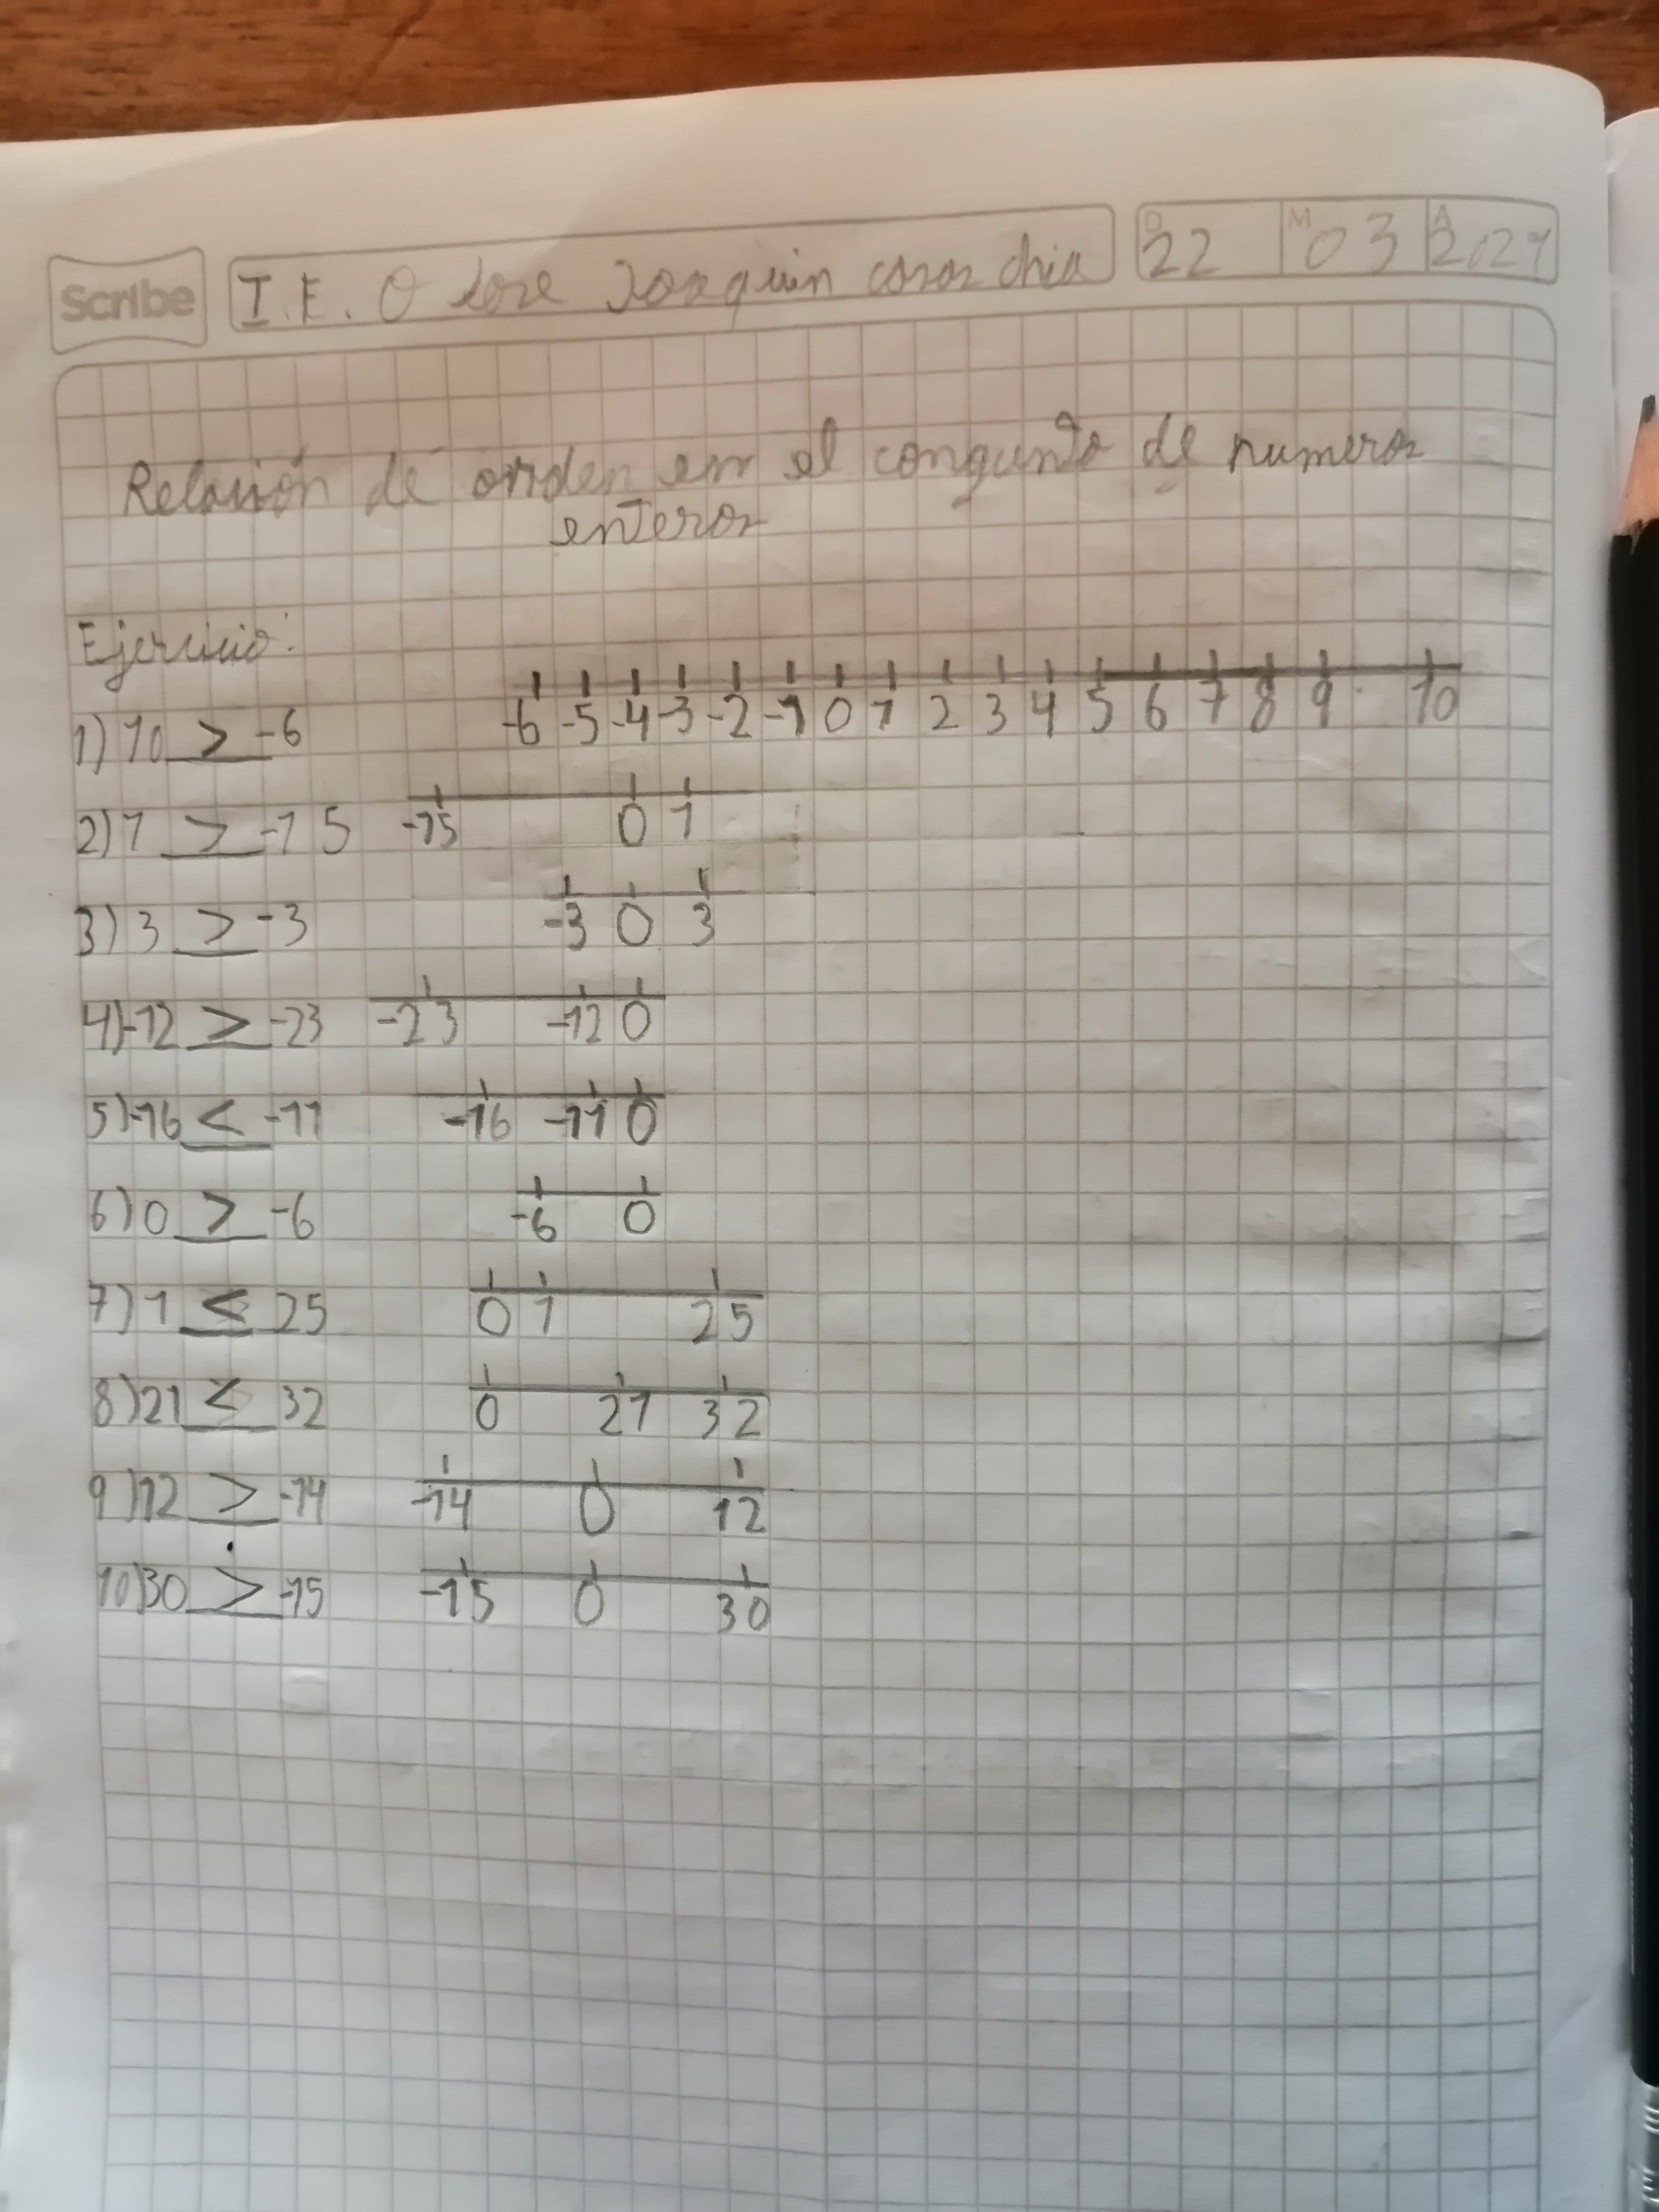 Scribe I.E. O Jose Joaquin casas chia D 22 M 03 A 2021
Relación de orden en el congunto de numeros
enteros
Ejercicio:
-6 -5 -4 -3 -2 -1 0 1 2 3 4 5 6 7 8 9 10
1) 10 > -6
2) 1 > -15 -15 0 1
3) 3 > -3 -3 0 3
4) -12 > -23 -23 -12 0
5) -16 < -11 -16 -11 0
6) 0 > -6 -6 0
7) 1 < 25 0 1 25
8) 21 < 32 0 21 32
9) 12 > -14 -14 0 12
10) 30 > -15 -15 0 30